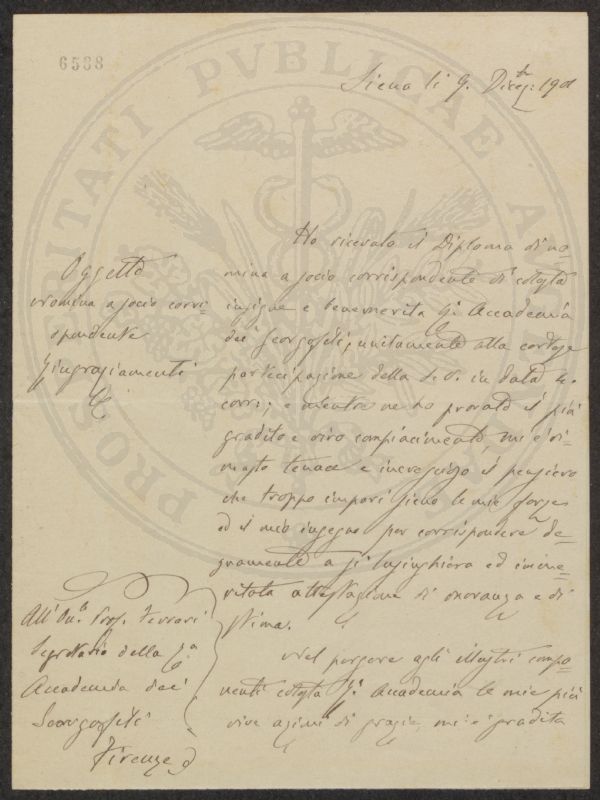 6538
Siena li 9. Dice: 1901
Ho ricevuto il Diploma di no-
mina a socio corrispondente di cotesta
insigne e benemerita R. Accademia
dei Georgofili, unitamente alla cortese
partecipazione della S. V. in data 4.
corr:; e mentre ne ho provato il più
gradito e vivo compiacimento, mi è ri-
masto tenace e increscioso il pensiero
che troppo impari sieno le mie forze
ed il mio ingegno per corrispondere de-
gnamente a sì lusinghiera ed imme-
ritata attestazione di onoranza e di
stima.
Nel porgere agli illustri compo-
nenti cotesta R. Accademia le mie più
vive azioni di grazie, mi è gradita
Oggetto
Nomina a socio corri-
spondente
Ringraziamenti
All' On. Prof. Ferrari
Segretario della R.a
Accademia dei
Georgofili
Firenze
PROSPERITATI PVBLICAE AVGENDAE